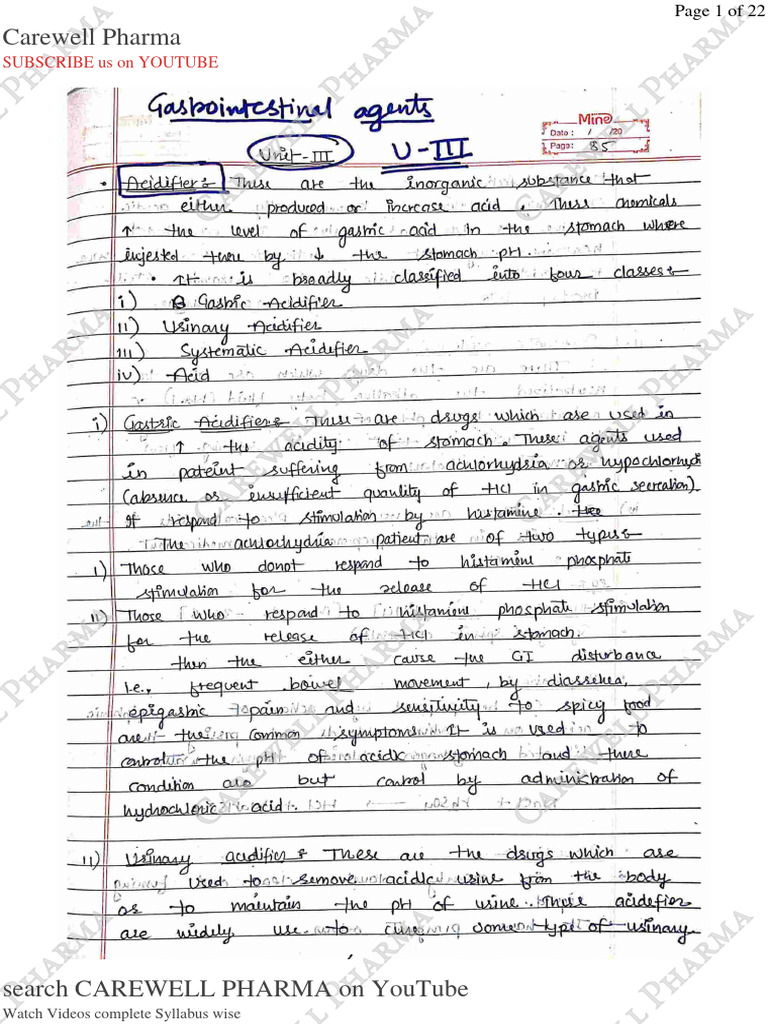 Page 1 of 22
Carewell Pharma
SUBSCRIBE us on YOUTUBE
Gastrointestinal agents
Mino
Date : / /20
Page: 85
Unit-III U-III
• Acidifier :- These are the inorganic substance that
either produced or increase acid. These chemicals
↑ the level of gastric acid in the stomach where
injested there by ↓ the stomach pH.
• It is broadly classified into four classes:-
i) Gastric Acidifier
ii) Urinary Acidifier
iii) Systematic Acidefier
iv) Acid
i) Gastric Acidifier:- These are drugs which are used in
↑ the acidity of stomach. These agents used
in pateint suffering from achlorhydria or hypochlorhydi
(absence or insufficient quantity of HCl in gastric secreation).
If respond to stimulation by histamine.
The achlorhydria patient are of two types:-
i) Those who donot respond to histament phosphate
stimulation for the release of HCl
ii) Those who respond to histament phosphate stimulation
for the release of HCl in stomach.
then the either cause the GI disturbance
i.e., frequent bowel movement, by diarrehea,
epigastric pain and sensitivity to spicy food
are the common symptoms. It is used to
control the pH of acidic stomach and there
condition are but control by administration of
hydrochloric acid.
ii) Urinary acidifier :- These are the drugs which are
used to remove acidic urine from the body
or to maintain the pH of urine. These acidefier
are widely use to cure some type of urinary
search CAREWELL PHARMA on YouTube
Watch Videos complete Syllabus wise
CAREWELL PHARMA